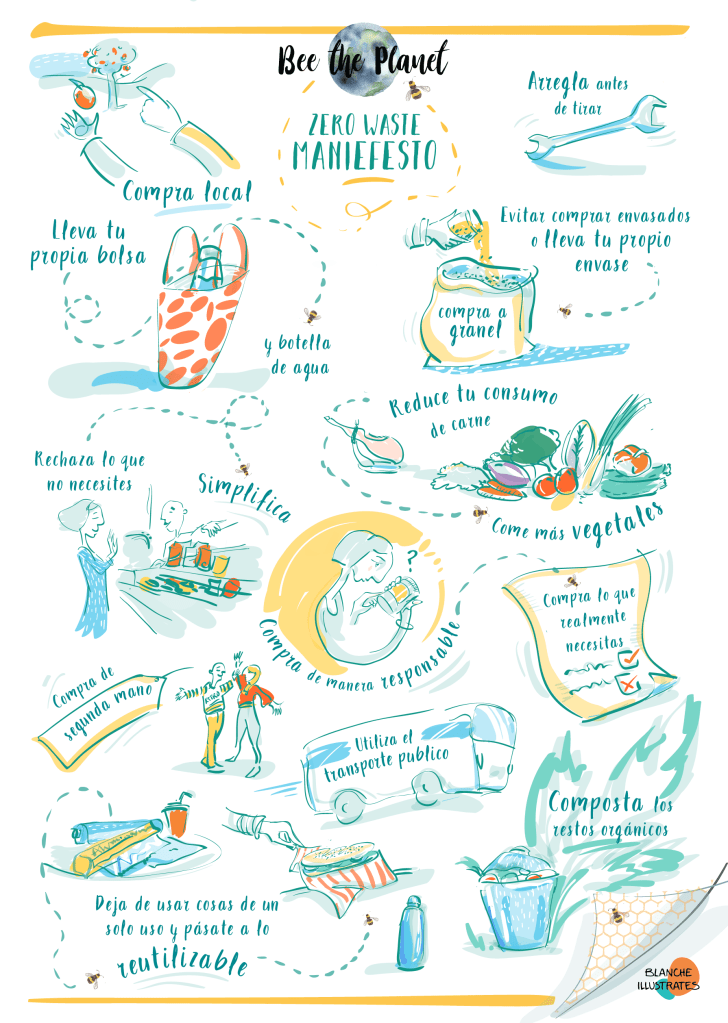 Bee the Planet
ZERO WASTE
MANIEFESTO
Arregla antes
de tirar
Compra local
Lleva tu
propia bolsa
y botella
de agua
Evitar comprar envasados
o lleva tu propio
envase
compra a
granel
Reduce tu consumo
de carne
Come más vegetales
Rechaza lo que
no necesites
Simplifica
?
Compra de manera responsable
Compra lo que
realmente
necesitas
Compra de
segunda mano
Utiliza el
transporte publico
Composta los
restos orgánicos
Deja de usar cosas de un
solo uso y pásate a lo
reutilizable
BLANCHE
ILLUSTRATES